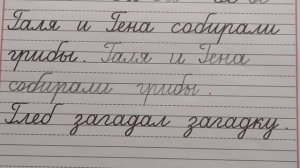 Галя и Гена собирали
грибы. Галя и Гена
собирали грибы.
Глеб загадал загадку.